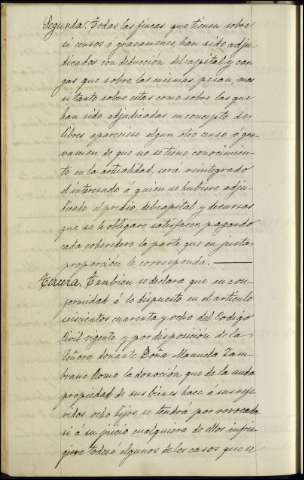 Segunda. Todas las fincas que tienen sobre
si censos o gravamenes, han sido adju-
dicadas con deduccion del capital y car-
gas que sobre las mismas pesan, mas
si tanto sobre estas como sobre las que
han sido adjudicadas en concepto de
libres apareciese algun otro censo ó gra-
vamen de que no se tiene conocimien-
to en la actualidad, sera reintegrado
el interesado á quien se hubiere adju-
dicado el predio, del capital y discursas
que se le obligare satisfacer, pagando
cada coheredero la parte que en justa
proporción le corresponda.
Tercera. Tambien se declara que en con-
formidad á lo dispuesto en el articulo
seiscientos cuarenta y ocho del Codigo
Civil vigente y por disposición de la
Señora donante Doña Manuela Zam-
brano Romo la donación que de la nuda
propiedad de sus bienes hace á sus refe-
ridos ocho hijos se tendrá por revocada
si á su juicio cualquiera de ellos infrin-
giere todos o algunos de los casos que se